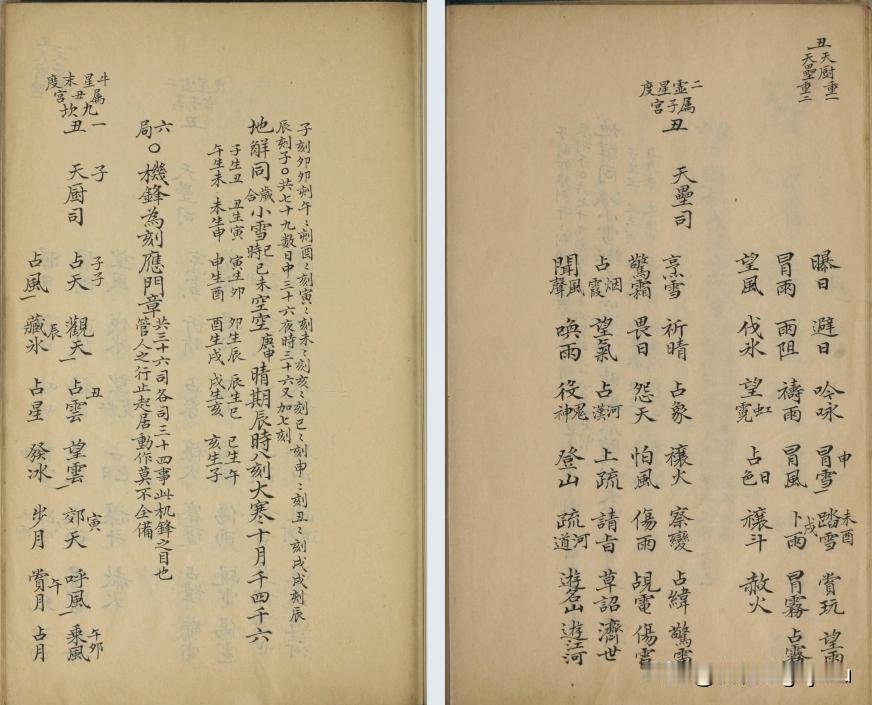 子刻卯卯刻午〻刻酉〻刻寅〻刻未〻刻亥〻刻巳〻刻申〻刻丑〻刻戌戌刻辰
辰刻子〇共七十九數日中三十六夜時三十六又加七刻
地解同歲合小雪巳時己未空空庚申晴期辰時八刻大寒十月千四千六
子生丑 丑生寅 寅生卯 卯生辰 辰生巳 巳生午
午生未 未生申 申生酉 酉生戌 戌生亥 亥生子
六局〇機鋒為刻應門章
共三十六司各司三十四事此机鋒之目也
管人之行止起居動作莫不全備
牛星末度
属丑宫
九坎
一丑 子 天厨司 子子 占天 觀天一 丑 占雲 望雲一 寅 郊天 呼風一 午卯 乘風
占風一 辰 藏氷 占星 發冰 步月 午 賞月 占月
丑 天厨重一
天壘重二
曝日 避日 吟咏 申 冒雪一 未酉 踏雪 賞玩 望雨
冒雨 雨阻 禱雨 冒風 戌 卜雨 冒霧 占霧
望風 伐氷 望虹霓 占日色 禳斗 赦火
二靈星度
属子宫
丑 天壘司
烹雪 祈晴 占象 禳火 察變 占緯 驚雷
驚霜 畏日 怨天 怕風 傷雨 覘電 傷雪
占烟霞 望氣 占河漢 上疏 請旨 草詔 濟世
聞風聲 喚雨 役鬼神 登山 疏河道 遊名山 遊江河